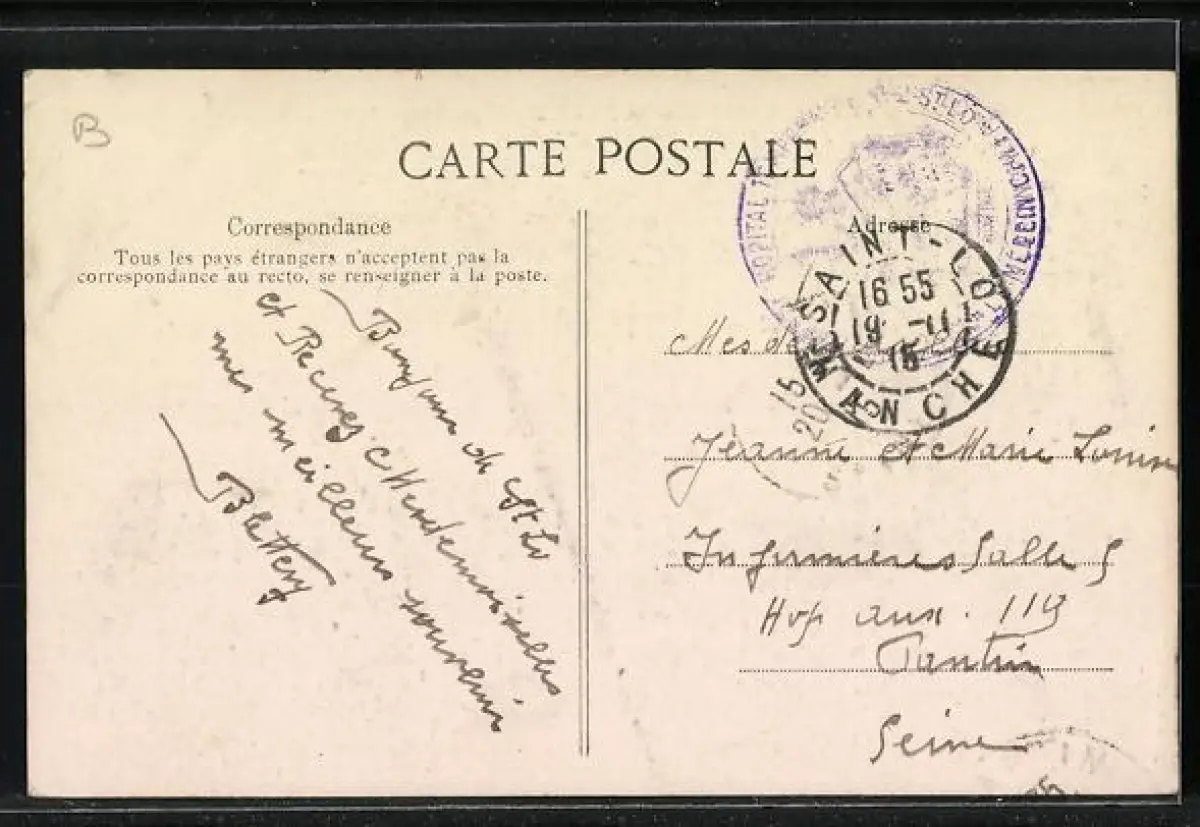 B
CARTE POSTALE
Correspondance
Tous les pays étrangers n'acceptent pas la
correspondance au recto, se renseigner à la poste.
Bonjour de St Lo
et Recevez Mesdemoiselles
mes meilleurs souvenirs
Blettery
HOPITAL ST LO
Adresse
SAINT-LO
16 55
19 -11
15
MANCHE
15
20
Jeanne et Marie Louise
Infirmières Salle S
Hop aux. 119
Pantin
Seine